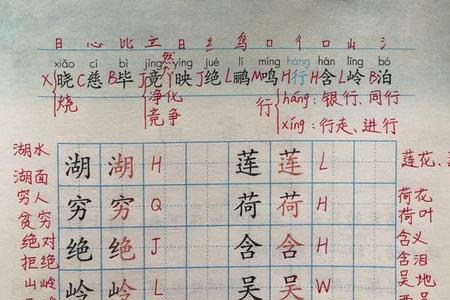 日 心 比 立 日 纟 鸟 口 彳 口 山 氵
xiǎo cí bì jìng yìng jué lí míng háng hán lǐng bó
X晓 C慈 B毕 J竟 Y映 J绝 L鹂 M鸣 H行 H含 L岭 B泊
烧 净化 竞争 行 háng:银行、同行
xíng:行走、进行
湖水 湖 湖 H 莲 莲 L 莲花、
湖面
穷人 穷 穷 Q 荷 荷 H 荷花
贫穷 荷叶
绝对 绝 绝 J 含 含 H 含义
拒绝 含泪
山岭 岭 岭 L 吴 吴 W 吴地